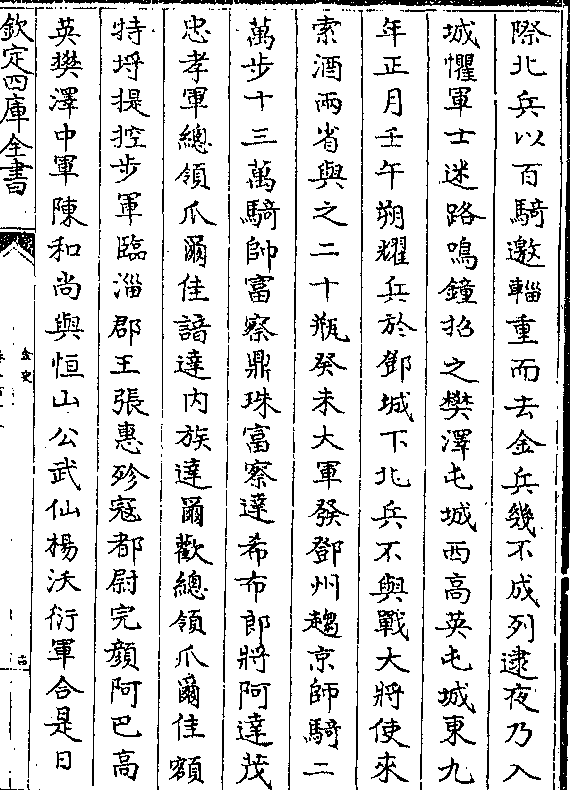 際北兵以百騎邀輜重而去金兵幾不成列逮夜乃入
城懼軍士迷路鳴鐘招之樊澤屯城西高英屯城東九
年正月壬午朔耀兵於鄧城下北兵不與戰大將使來
索酒兩省與之二十瓶癸未大軍發鄧州趨京師騎二
萬步十三萬騎帥富察鼎珠富察達希布郎將阿達茂
忠孝軍總領爪爾佳諳達內族達爾歡總領爪爾佳額
特埒提控步軍臨淄郡王張惠殄寇都尉完顏阿巴高
英樊澤中軍陳和尚與恒山公武仙楊沃衍軍合是日
欽定四庫全書
金史